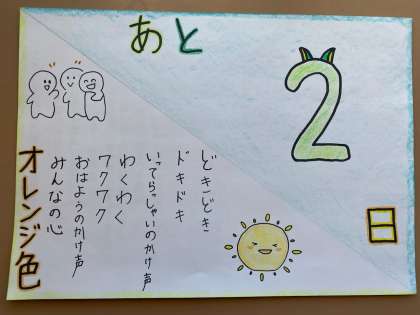 あと
2
日
どきどき
ドキドキ
いってらっしゃいのかけ声
わくわく
ワクワク
おはようのかけ声
みんなの心
オレンジ色